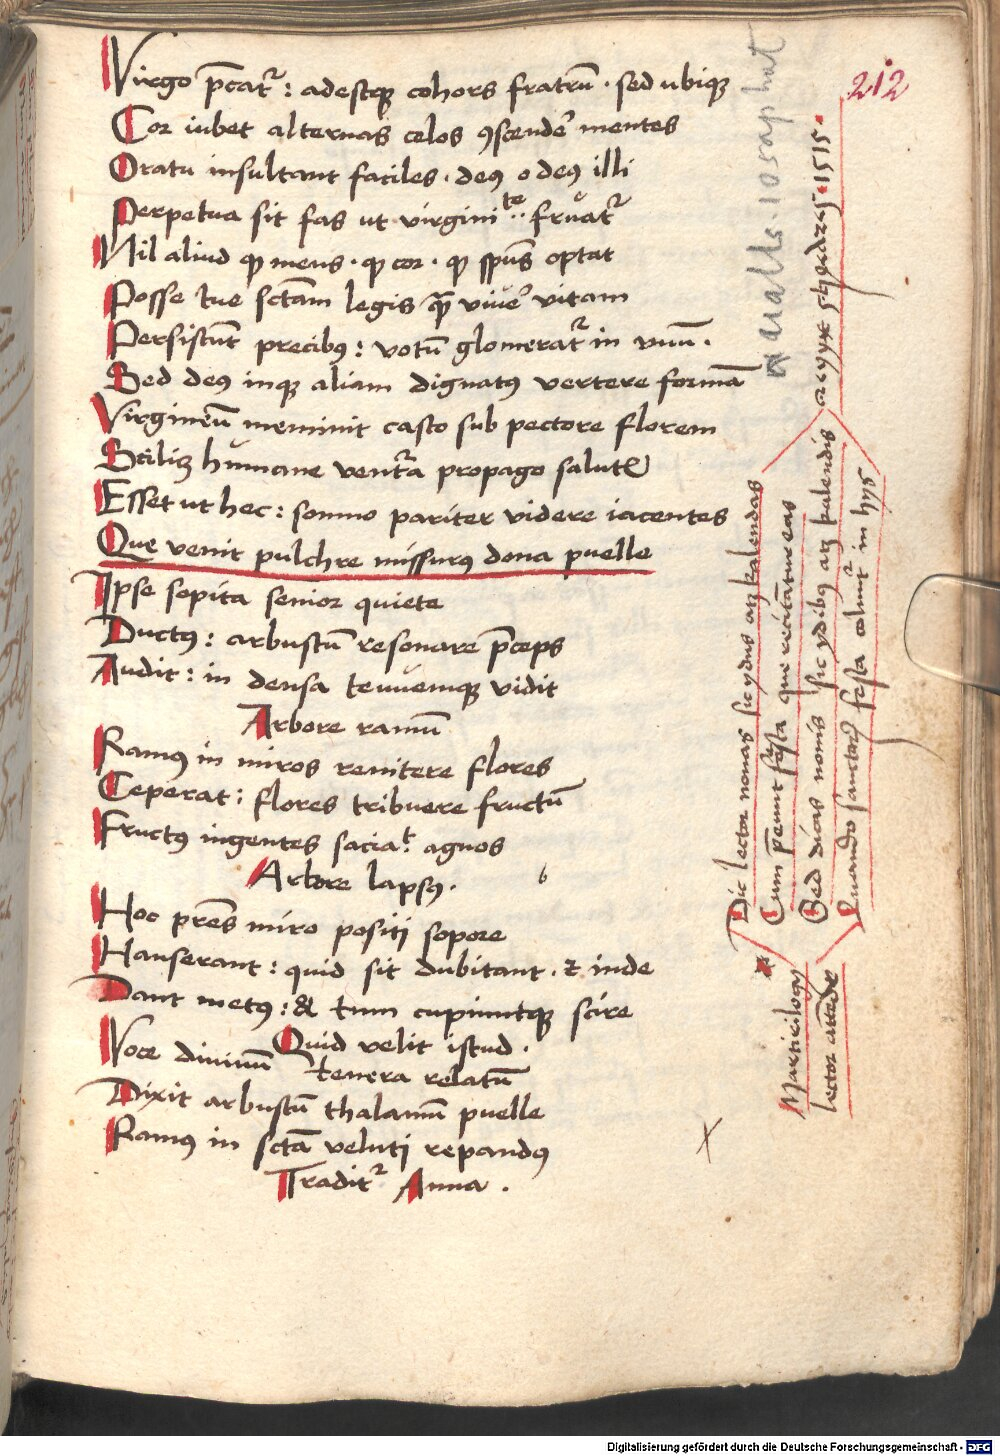 212
Virgo p̄cat᷑ : adestq̢ cohors fratrū · sed ubiq̢
Cor iubet alternas celos ꝯscende᷑ mentes
Oratu insultant faciles · deꝰ o deꝰ illi
Perpetua sit fas ut virginitate fruat᷑
Nil aliud qp mens · qp cor · qp spūs optat
Posse tue sctam legis quā vive᷑ vitam
Persistūt precibꝰ : votū glomerat᷑ in vnū ·
Sed deꝰ inq̢ aliam dignatꝰ vertere formā
Virgineū meminit casto sub pectore florem
humane propago
Esset ut hec : somno pariter videre iacentes
Que venit pulchre missurꝰ dona puelle
Ipse sopita senior quiete
Ductꝰ : arbustū resonare p̄ceps
Audit : in densa tenuemq̢ vidit
Arbore ramū
Ramꝰ in miros renitere flores
Ceperat : flores tribuere fructū
Fructꝰ ingentes saciat agnos
Arbore lapsꝰ ·
Hoc miro positi sopore
Hauserant : quid sit dubitant · ⁊ inde
Dant metꝰ : & tum cupiuntq̢ scire
Quid velit istud ·
Voce divinū tenera relatū
Dixit arbustū thalamū puelle
Ramꝰ in sctā veluti repandꝰ
Tradit᷑ Anna ·
Martirilogy
lector
Dic lector nonas sic ydus atq̢ kalendas
Cum festa que recitātur eas
Sed dicas nonis sic ydibꝰ atq̢ kalendis
Quando festa in hys
1515
uallis · iosaphat
Digitalisierung gefördert durch die Deutsche Forschungsgemeinschaft - DFG